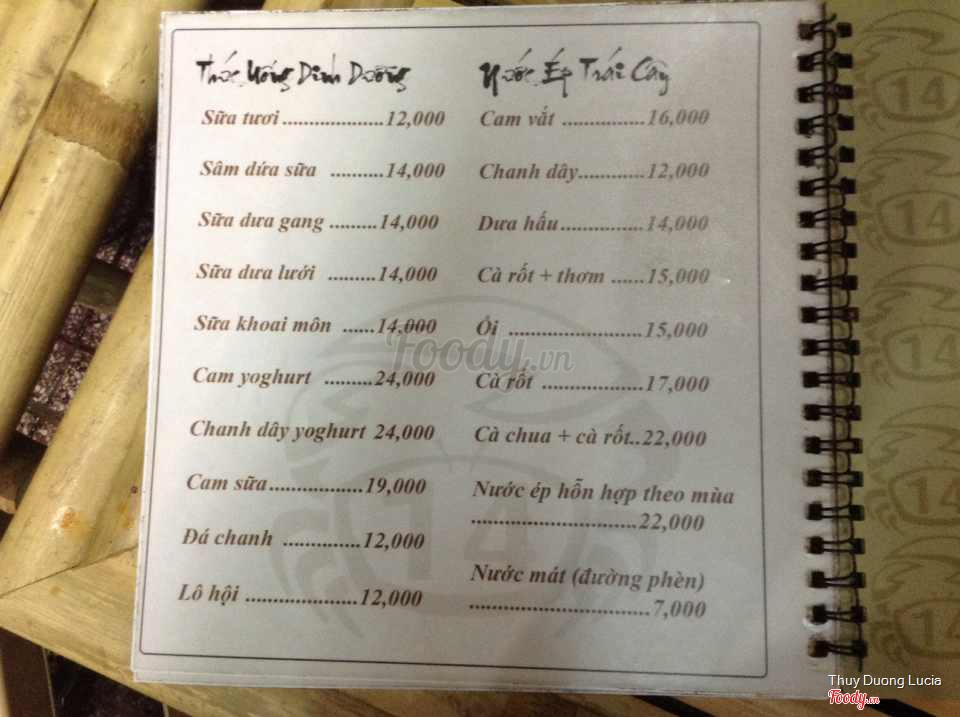 Thức Uống Dinh Dưỡng
Sữa tươi ...................12,000
Sâm dứa sữa ..........14,000
Sữa dưa gang .........14,000
Sữa dưa lưới .........14,000
Sữa khoai môn ......14,000
Cam yoghurt .........24,000
Chanh dây yoghurt 24,000
Cam sữa.................19,000
Đá chanh ..............12,000
Lô hội ....................12,000
Nước Ép Trái Cây
Cam vắt ...............16,000
Chanh dây............12,000
Dưa hấu...............14,000
Cà rốt + thơm ......15,000
Ổi ........................15,000
Cà rốt ..................17,000
Cà chua + cà rốt..22,000
Nước ép hỗn hợp theo mùa
..............................22,000
Nước mát (đường phèn)
.................................7,000
Foody.vn
14
14
14
14
14
14
Thuy Duong Lucia
Foody.vn